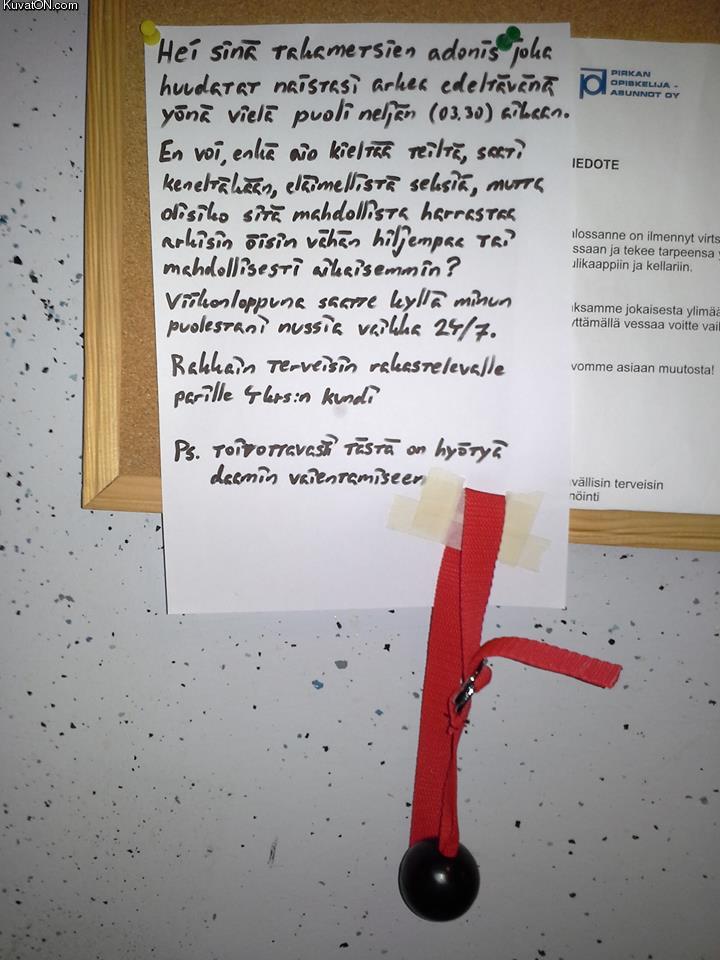 KuvatON.com
Hei sinä takametsien adonis joka
huudatat naistasi arkea edeltävänä
yönä vielä puoli neljän (03.30) aikaan.
En voi, enkä aio kieltää teiltä, saati
keneltäkään, eläimellistä seksiä, mutta
olisiko sitä mahdollista harrastaa
arkisin öisin vähän hiljempaa tai
mahdollisesti aikaisemmin?
Viikonloppuna saatte kyllä minun
puolestani nussia vaikka 24/7.
Rakkain terveisin rakastelevalle
parille 4krs:n kundi
Ps. toivottavasti tästä on hyötyä
daamin vaientamiseen
PIRKAN
OPISKELIJA-
ASUNNOT OY
IEDOTE
lossanne on ilmennyt virts
ssaan ja tekee tarpeensa
ulikaappiin ja kellariin.
ksamme jokaisesta ylimää
yttämällä vessaa voitte vai
vomme asiaan muutosta!
vällisin terveisin
nöinti